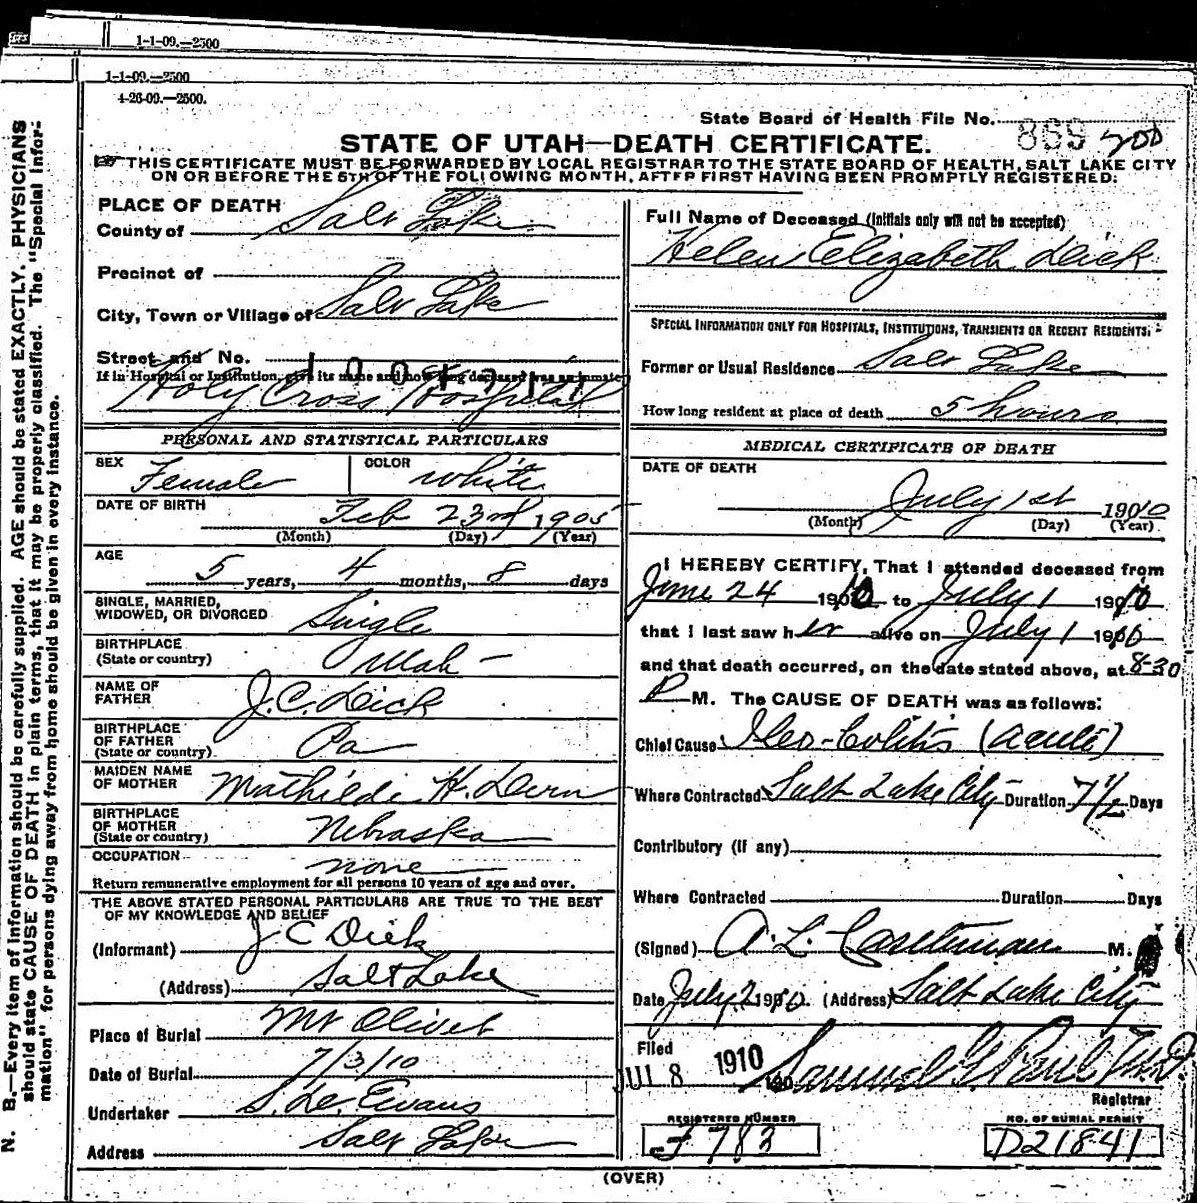 1-1-09.—2500
1-1-09.—2500
4-26-09.—2500.
State Board of Health File No. 869 200
STATE OF UTAH—DEATH CERTIFICATE.
THIS CERTIFICATE MUST BE FORWARDED BY LOCAL REGISTRAR TO THE STATE BOARD OF HEALTH, SALT LAKE CITY
ON OR BEFORE THE 5TH OF THE FOLLOWING MONTH, AFTER FIRST HAVING BEEN PROMPTLY REGISTERED:
N. B.—Every item of information should be carefully supplied. AGE should be stated EXACTLY. PHYSICIANS
should state CAUSE OF DEATH in plain terms, that it may be properly classified. The "Special Infor-
mation" for persons dying away from home should be given in every instance.
PLACE OF DEATH
County of Salt Lake
Precinct of
City, Town or Village of Salt Lake
Street and No.
If in Hospital or Institution, give its name and how long deceased was an inmate
Holy Cross Hospital
PERSONAL AND STATISTICAL PARTICULARS
SEX Female COLOR White
DATE OF BIRTH Feb 23rd 1905
(Month) (Day) (Year)
AGE
5 years, 4 months, 8 days
SINGLE, MARRIED,
WIDOWED, OR DIVORCED Single
BIRTHPLACE
(State or country) Utah
NAME OF
FATHER J. C. Dick
BIRTHPLACE
OF FATHER
(State or country) Pa
MAIDEN NAME
OF MOTHER Mathilde H. Dern
BIRTHPLACE
OF MOTHER
(State or country) Nebraska
OCCUPATION none
Return remunerative employment for all persons 10 years of age and over.
THE ABOVE STATED PERSONAL PARTICULARS ARE TRUE TO THE BEST
OF MY KNOWLEDGE AND BELIEF
(Informant) J C Dick
(Address) Salt Lake
Place of Burial Mt Olivet
Date of Burial 7/3/10
Undertaker S. De. Evans
Address Salt Lake
Full Name of Deceased (Initials only will not be accepted)
Helen Elizabeth Dick
SPECIAL INFORMATION ONLY FOR HOSPITALS, INSTITUTIONS, TRANSIENTS OR RECENT RESIDENTS:
Former or Usual Residence Salt Lake
How long resident at place of death 5 hours
MEDICAL CERTIFICATE OF DEATH
DATE OF DEATH
July 1st 1910
(Month) (Day) (Year)
I HEREBY CERTIFY, That I attended deceased from
June 24 1910 to July 1 1910
that I last saw her alive on July 1 1910
and that death occurred, on the date stated above, at 8-30
P M. The CAUSE OF DEATH was as follows:
Chief Cause Ileo-Colitis (acute)
Where Contracted Salt Lake City Duration 7 1/2 Days
Contributory (if any)
Where Contracted Duration Days
(Signed) A. L. Castleman M.
Date July 2 1910. (Address) Salt Lake City
Filed
JUL 8 1910 190 Samuel G. Paul M.D.
Registrar
REGISTERED NUMBER
F 783
NO. OF BURIAL PERMIT
D21841
(OVER)